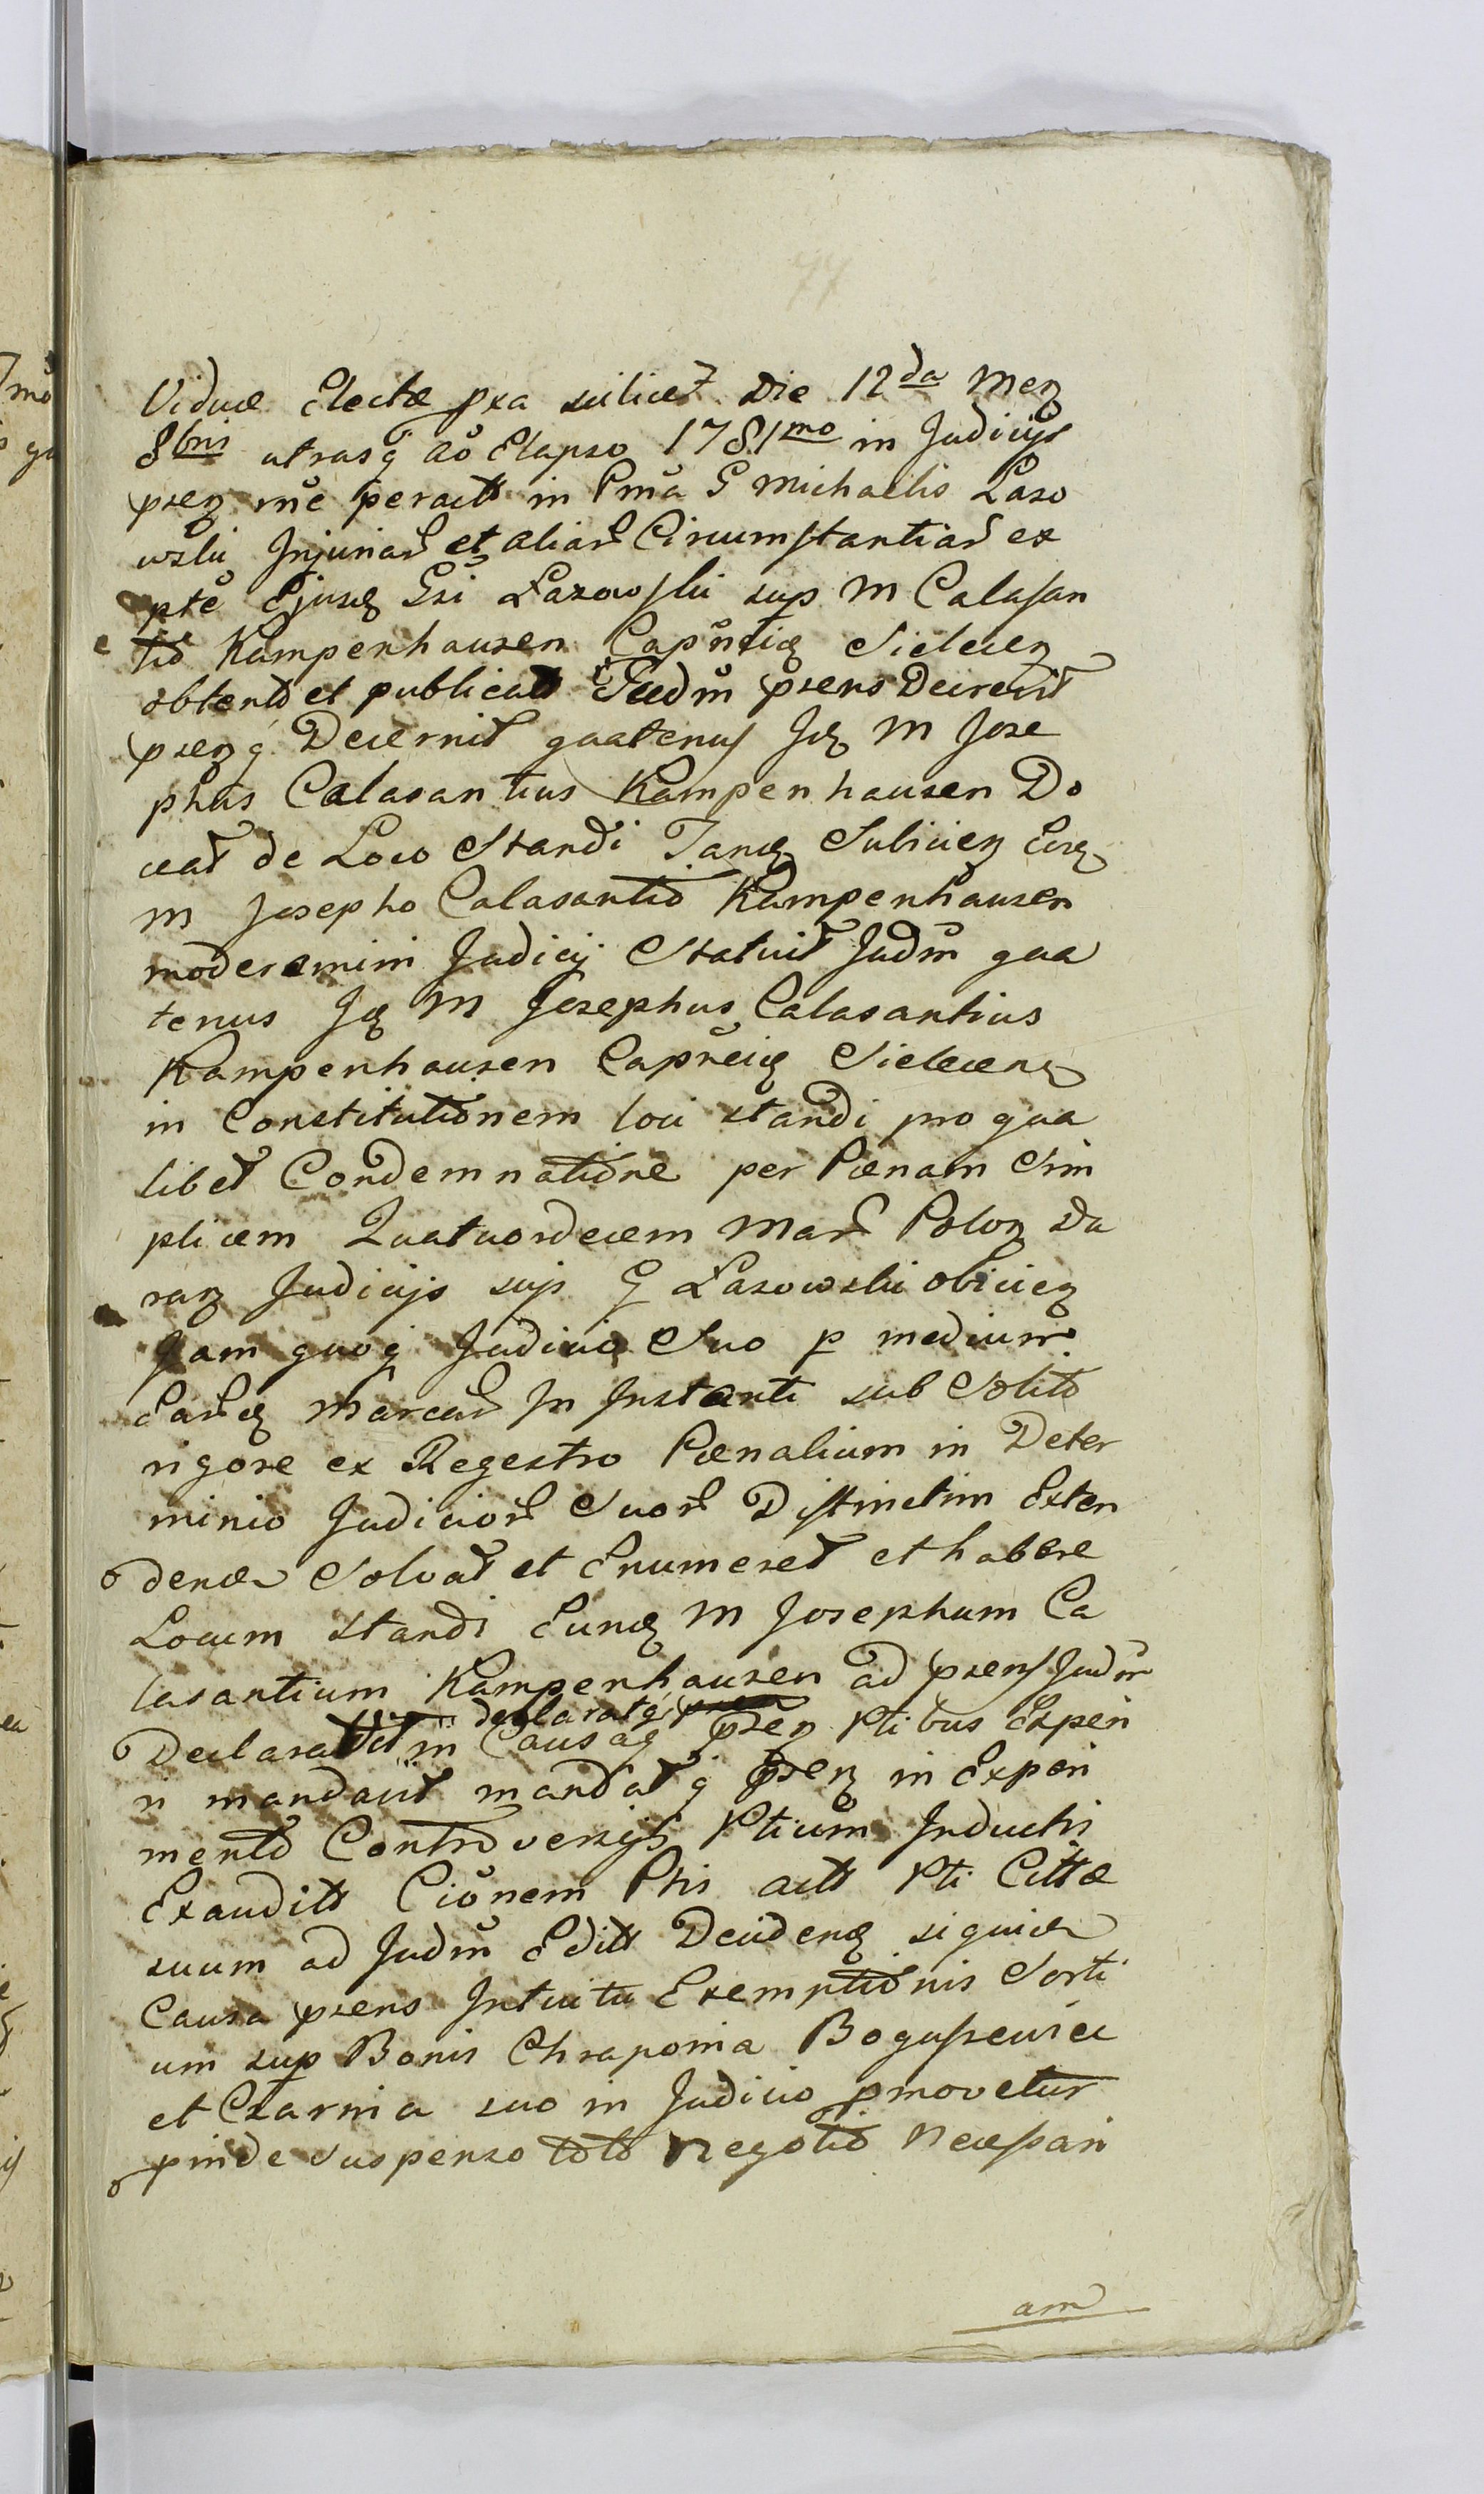 77
Viduæ Electæ pxa scilicet Die 12da Men
8bris utrasq ao Elapso 1781mo in Judicijs
psen rne peractt in Pma G Michaelis Laso
wski Injuriar et aliar Circumstantiar ex
pte Ejusd Gsi Lasowski sup M Calasan
tio Kampenhausen Capneid Sielecen
obtent et publicatt Judm psens Decrevit
psenq Decernit quatenus Id M Jose
phus Calasantius Kampenhausen Do
ceat de Loco Standi Tand Subicien Eid
M Josepho Calasantio Kampenhausen
moderamini Judicij Statuit Judm qua
tenus Id M Josephus Calasantius
Kampenhausen Capneid Sielecen
in Constitutionem loci standi pro qua
libet Condemnatione per Pœnam Sim
plicem Quatuordecem Mar Polon Du
ran Judicijs sup G Lasowski obicien
Jam quoq Judicio Suo p medium
Earud Marcar In Instanti sub Solito
rigore ex Regestro Pœnalium in Deter
minio Judicior Suor Distinctim Exten
dend Solvat et Enumeret et habere
Locum standi Eund M Josephum Ca
lasantium Kampenhausen ad psens Judm
declaratq
Declaravit in Causaq psen Ptibus Experi
ri mandavit mandatq psen in Experi
mento Controversijs Ptium Inductis
Exauditt Cionem Ptis actt Pti Cittæ
suum ad Judm Editt Decidend siquid
Causa psens Intuitu Exemptionis Sorti
um sup Bonis Chraponia Boguszewice
et Czarnia suo in Judicio pmovetur
pinde suspenso toto Negotio Necessari
am